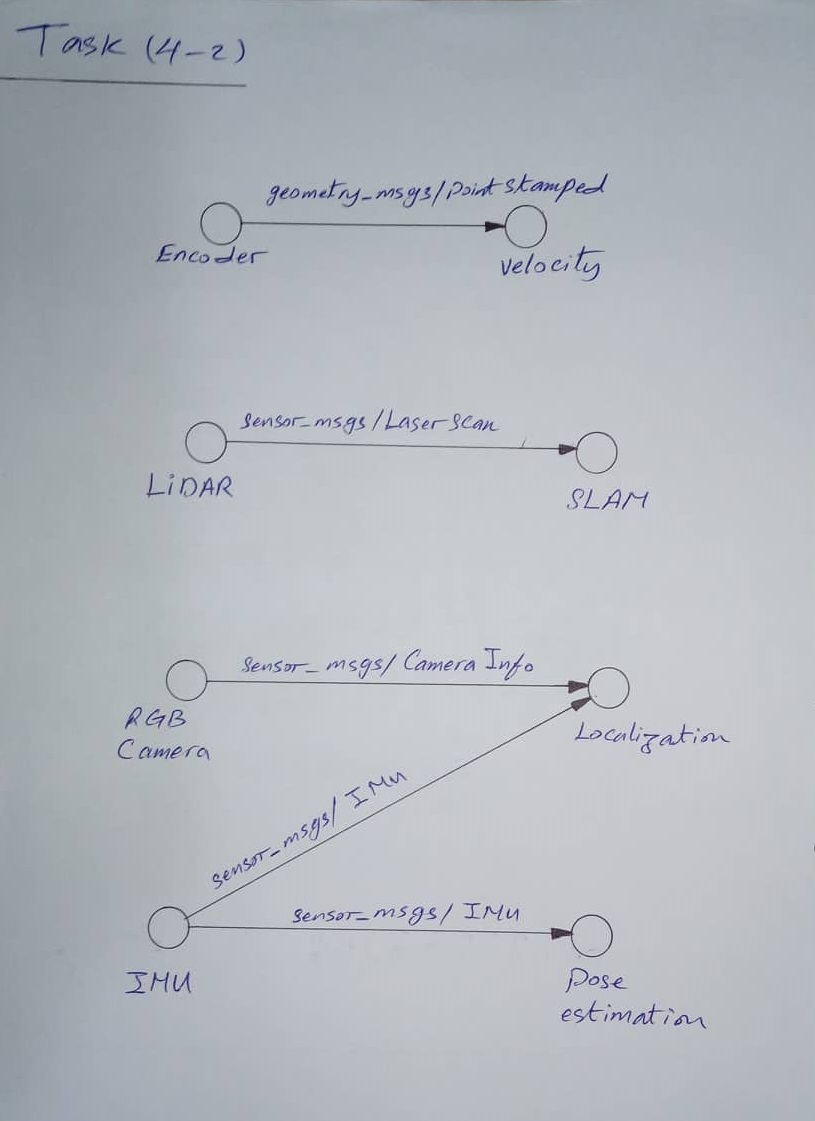 Task (4-2)
geometry_msgs/Point Stamped
Encoder
Velocity
Sensor_msgs/Laser Scan
LiDAR
SLAM
Sensor_msgs/Camera Info
RGB
Camera
Localization
sensor_msgs/IMU
Sensor_msgs/IMU
IMU
Pose
estimation